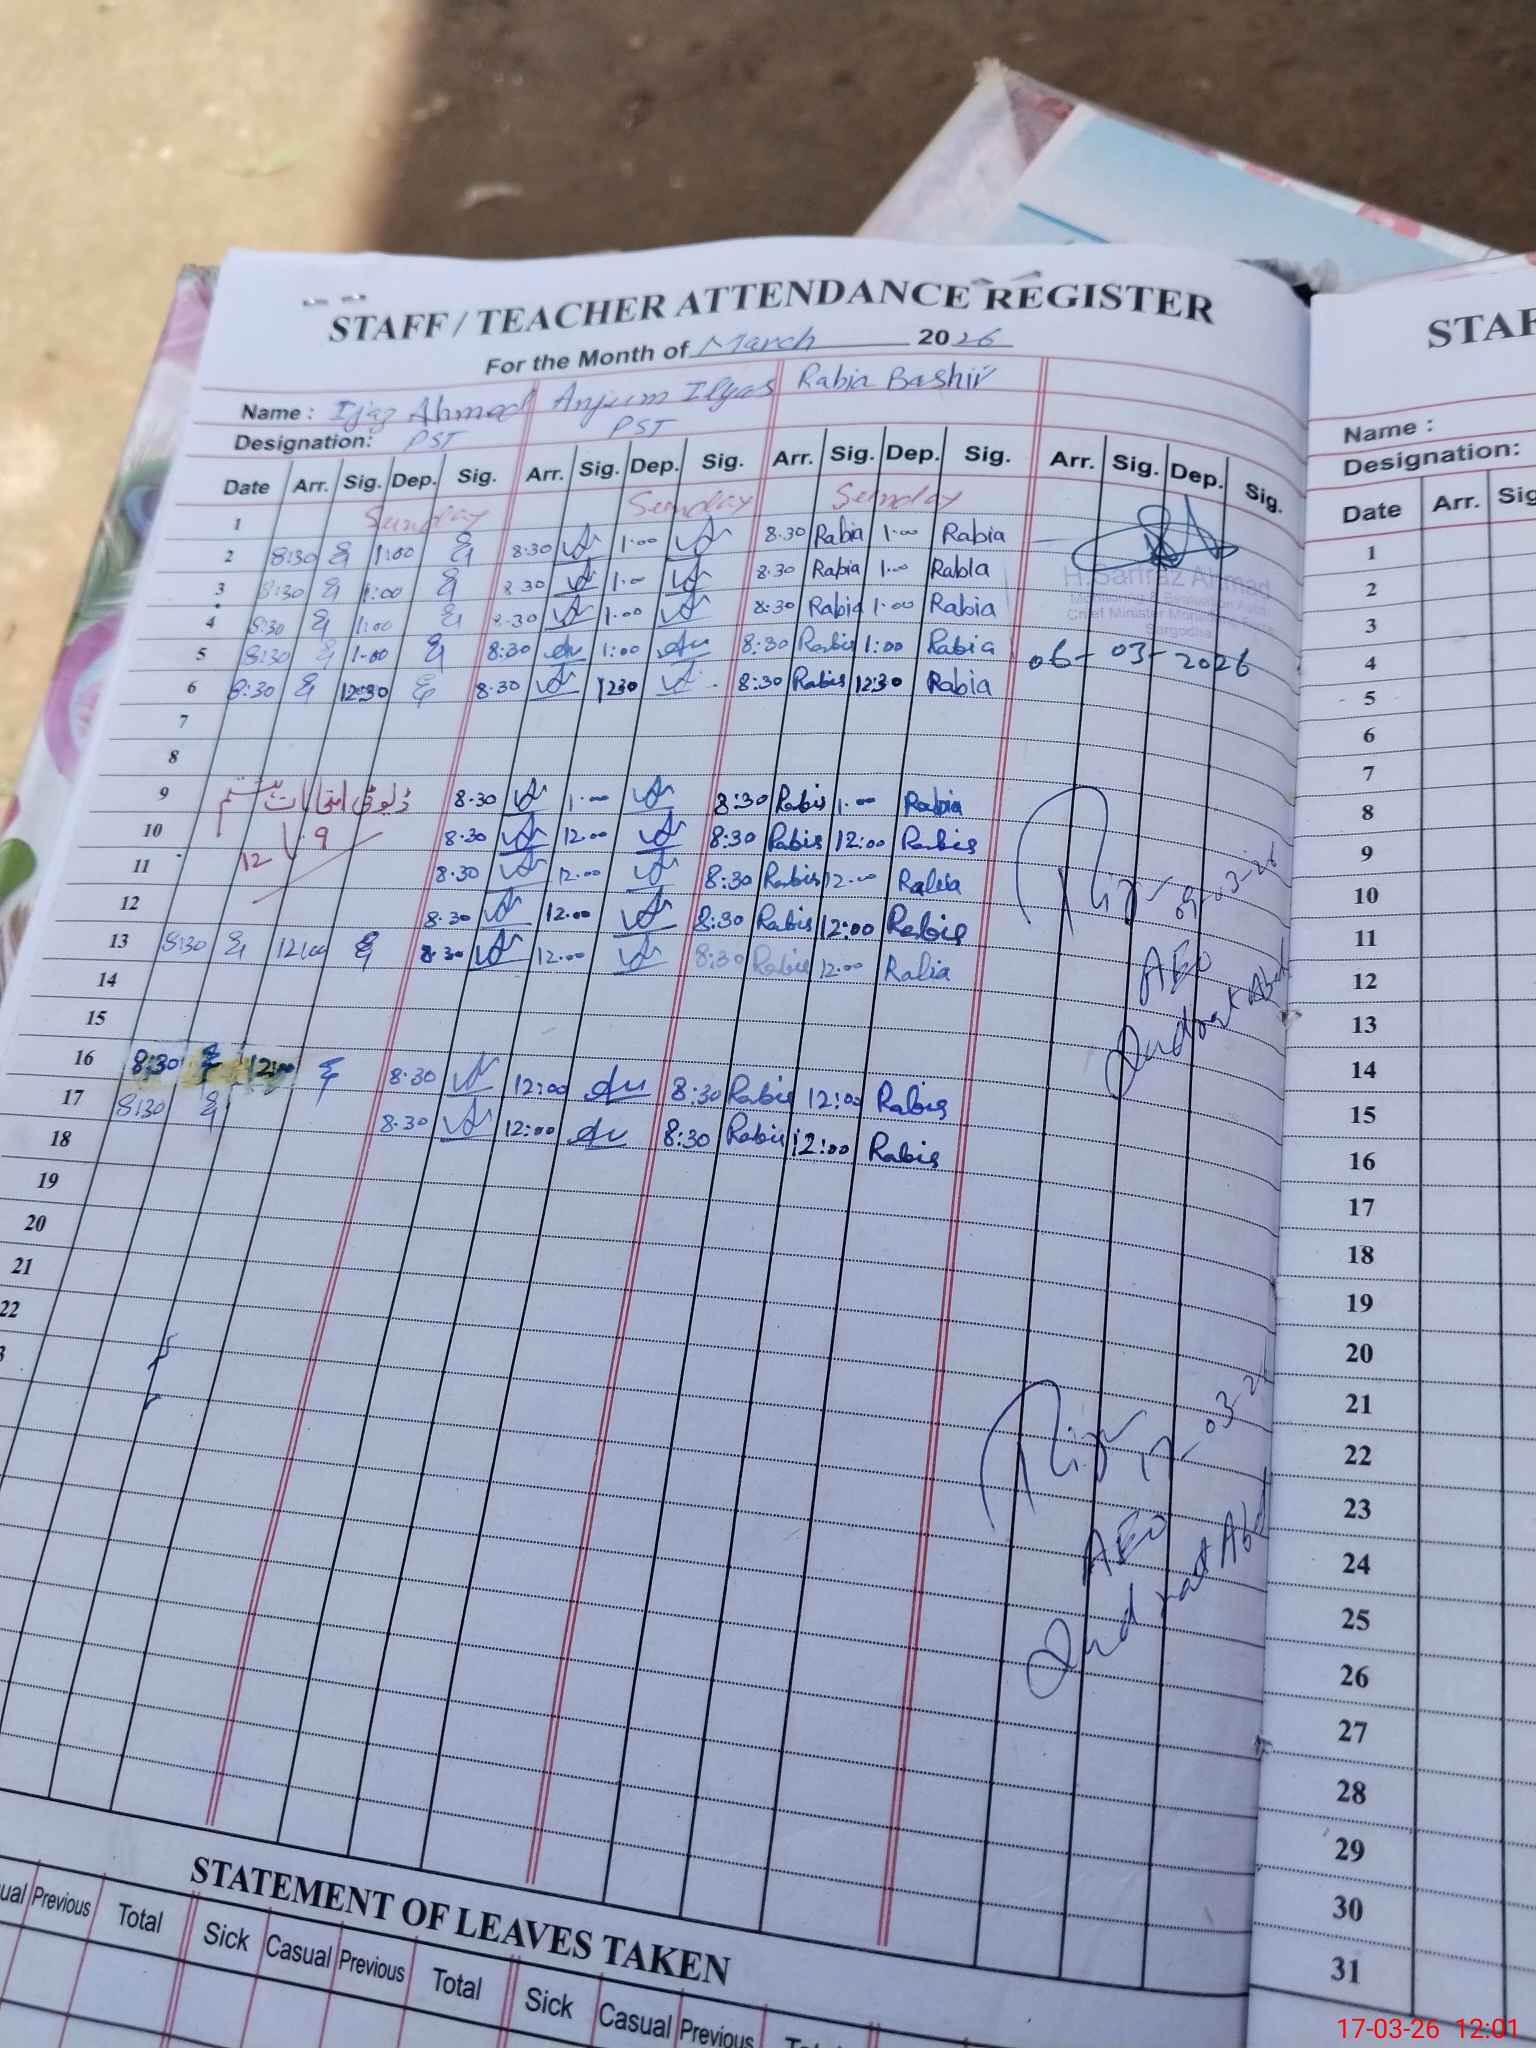 STAFF / TEACHER ATTENDANCE REGISTER
For the Month of March 2026
Name : Ijaz Ahmad Anjum Ilyas Rabia Bashir
Designation: PST PST
Date Arr. Sig. Dep. Sig. Arr. Sig. Dep. Sig. Arr. Sig. Dep. Sig. Arr. Sig. Dep. Sig.
1 Sunday Sunday Sunday
2 8:30 1:00 8:30 1:00 8:30 Rabia 1:00 Rabia
3 8:30 1:00 8:30 1:00 8:30 Rabia 1:00 Rabia
H. Sarfraz Ahmad
4 8:30 1:00 8:30 1:00 8:30 Rabia 1:00 Rabia
Sargodha
5 8:30 1:00 8:30 1:00 8:30 Rabia 1:00 Rabia
06-03-2026
6 8:30 12:30 8:30 1230 8:30 Rabia 12:30 Rabia
7
8
9 ڈیوٹی امتحانات 8:30 1:00 8:30 Rabia 1:00 Rabia
10 9 12 8:30 12:00 8:30 Rabia 12:00 Rabia
11 8:30 12:00 8:30 Rabia 12:00 Rabia
09-03-26
12 8:30 12:00 8:30 Rabia 12:00 Rabia
13 8:30 12:00 8:30 12:00 8:30 Rabia 12:00 Rabia
AEO
14
15
16 8:30 12:00 8:30 12:00 8:30 Rabia 12:00 Rabia
17 8:30 8:30 12:00 8:30 Rabia 12:00 Rabia
18
19
20
21
22
3
17-03-26
AEO
STATEMENT OF LEAVES TAKEN
ual Previous Total Sick Casual Previous Total Sick Casual Previous
STAF
Name :
Designation:
Date Arr. Sig
1
2
3
4
5
6
7
8
9
10
11
12
13
14
15
16
17
18
19
20
21
22
23
24
25
26
27
28
29
30
31
17-03-26 12:01